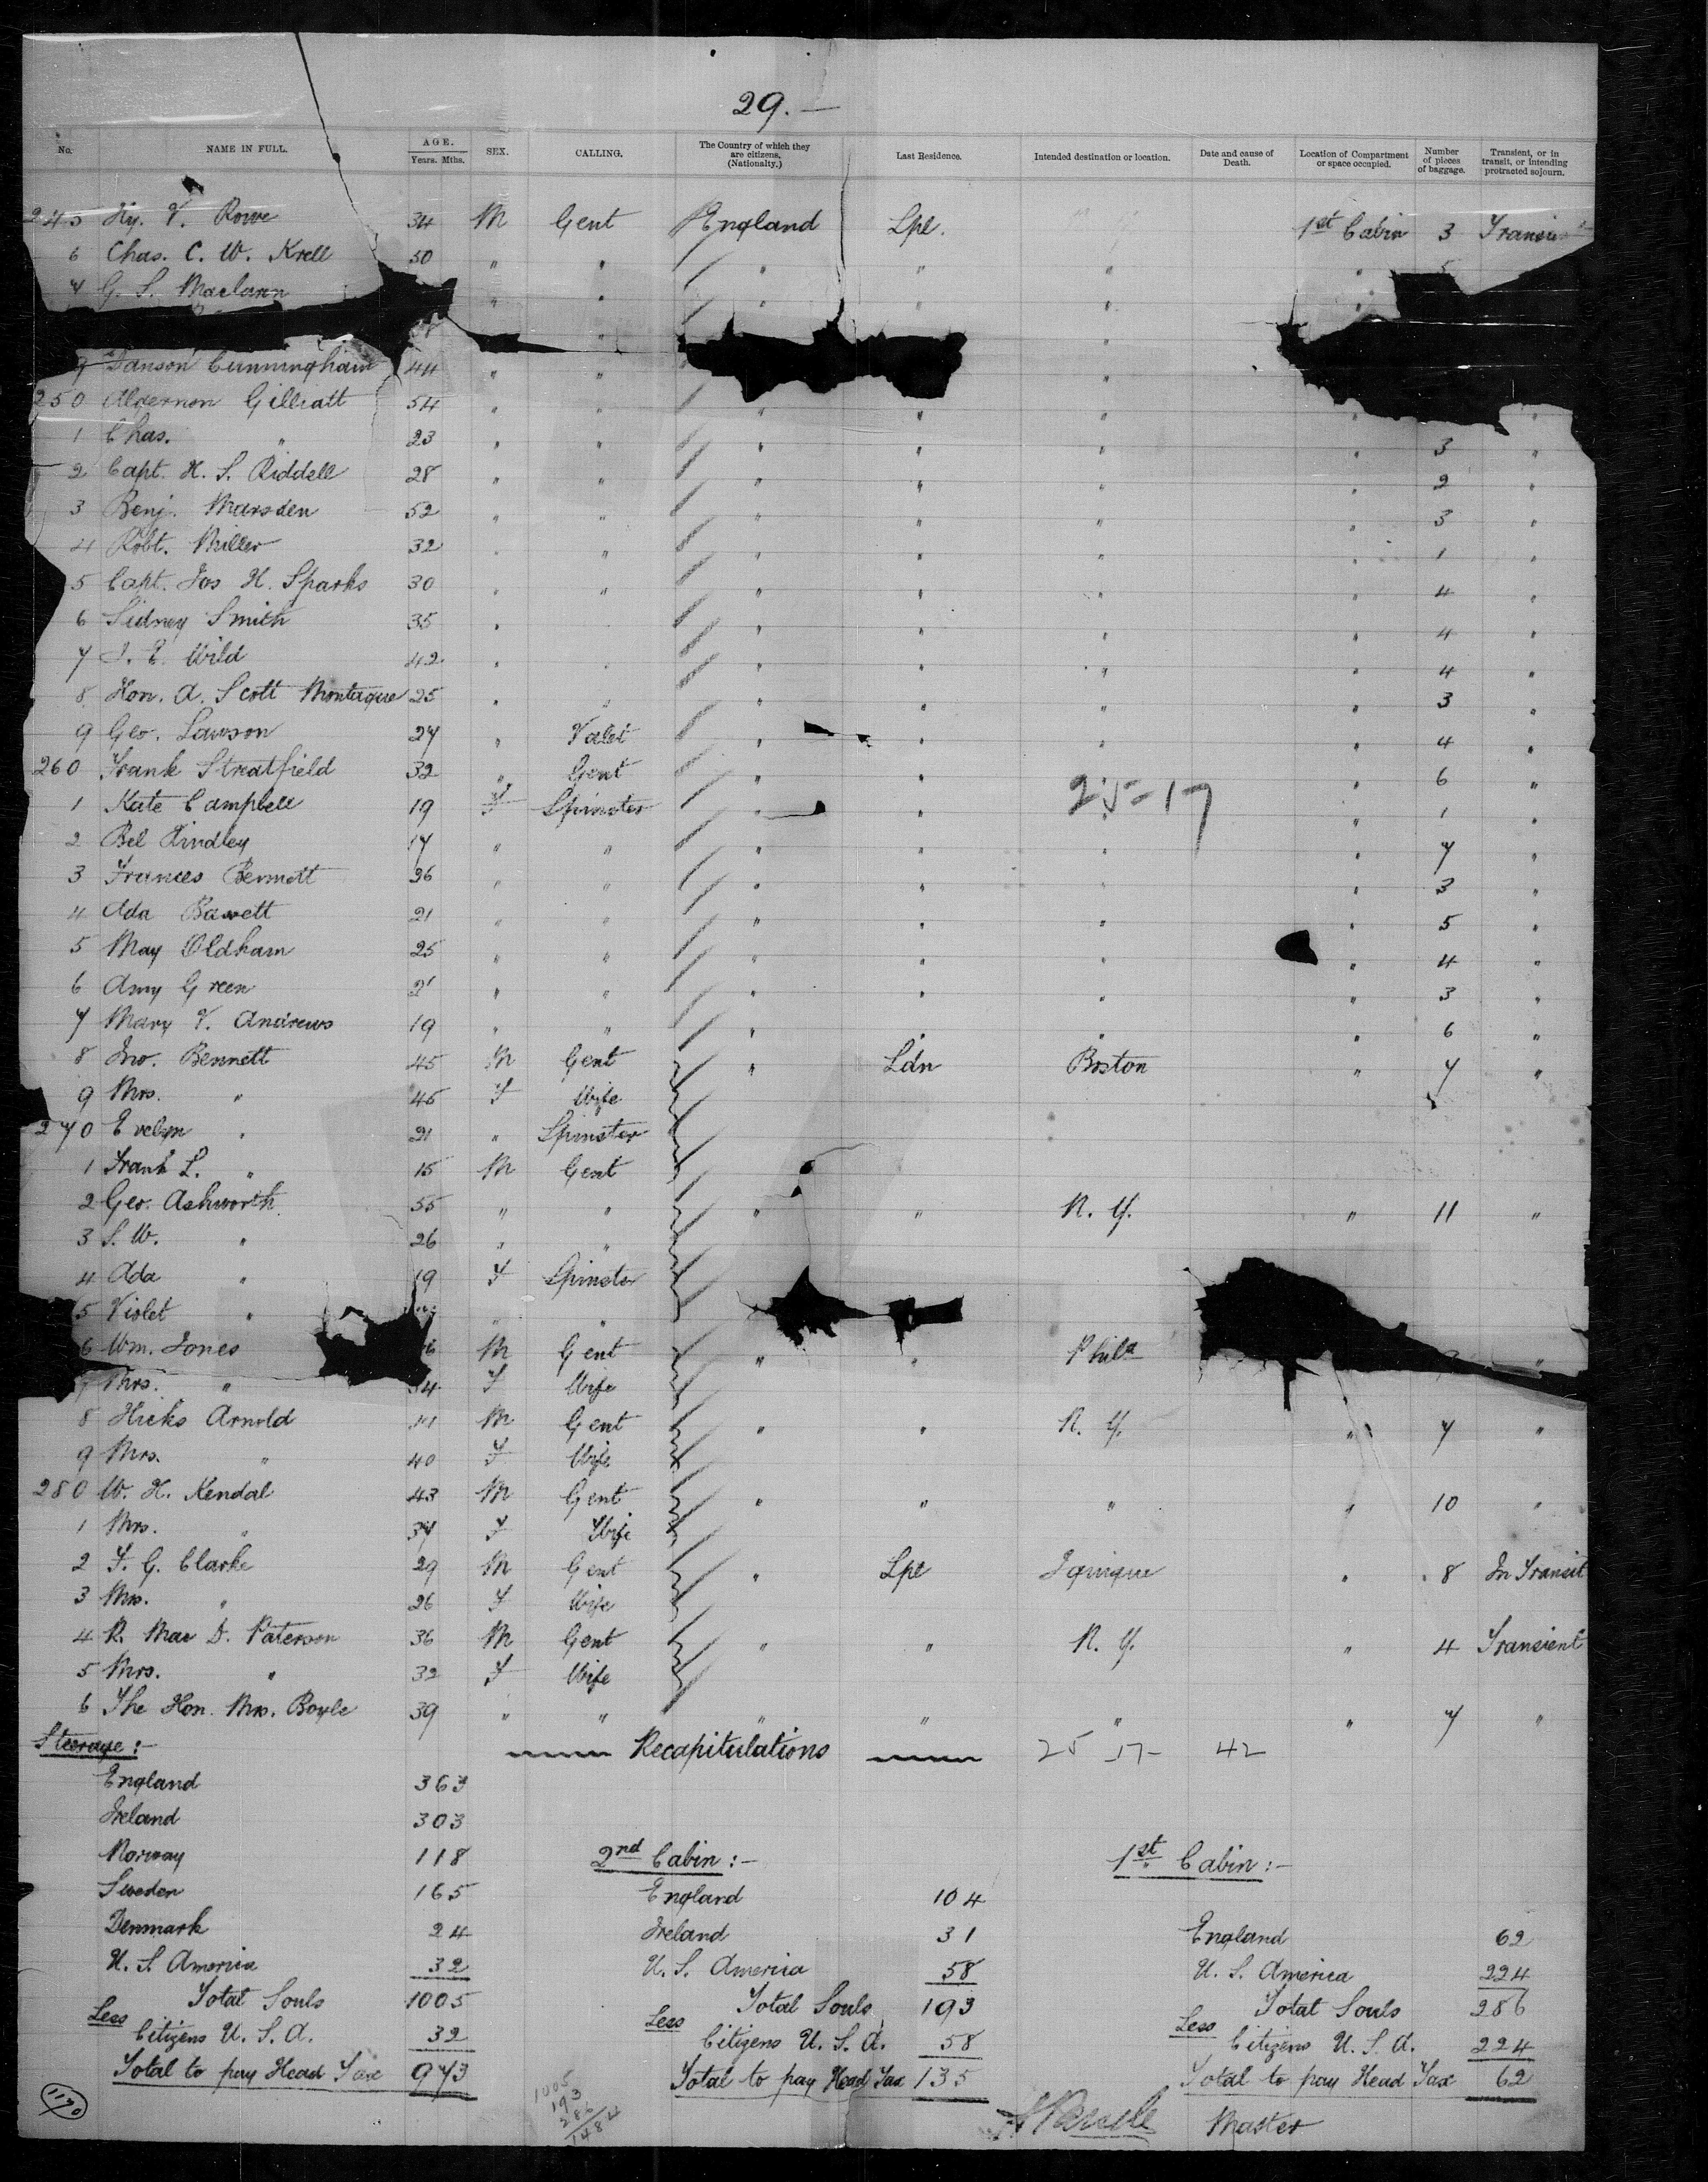 29.—
No. NAME IN FULL. AGE. Years. Mths. SEX. CALLING. The Country of which they are citizens. (Nationalty.) Last Residence. Intended destination or location. Date and cause of Death. Location of Compartment or space occupied. Number of pieces of baggage. Transient, or in transit, or intending protracted sojourn.
245 Hy. V. Rowe 34 M Gent England Lpl. 1st Cabin 3
6 Chas. C. W. Krell 50 " " " " " "
7 G. S. " " " " " "
9 Cunningham 44 " " "
250 Algernon Gilliatt 54 " " " " " " "
1 Chas. " 23 " " " " " " 3 "
2 Capt. H. S. Riddell 28 " " " " " " 2 "
3 Benj. Marsden 52 " " " " " " 3 "
4 Robt. Miller 32 " " " " " " 1 "
5 Capt. Jos H. Sparks 30 " " " " " " 4 "
6 Sidney Smith 35 " " " " " 4 "
7 J. E. Wild 42 " " " " " " 4 "
8 Hon. A. Scott Montague 25 " " " " " " 3 "
9 Geo. Lawson 27 " Valet " " " " 4 "
260 Frank Streatfield 32 " Gent " " " " 6 "
25-17
1 Kate Campbell 19 F Spinster " " " " 1 "
2 Bel 17 " " " " " " 7 "
3 Frances 26 " " " " " " 3 "
4 Ada 21 " " " " " " 5 "
5 May Oldham 25 " " " " " " 4 "
6 Amy Green 21 " " " " " " 3 "
7 Mary V. Andrews 19 " " " " " " 6 "
8 Jno. Bennett 45 M Gent " Ldn Boston " 7 "
9 Mrs. " 45 F Wife
270 Evelyn " 21 " Spinster
1 Frank L. " 15 M Gent
2 Geo. Ashworth 55 " " " " N. Y. " 11 "
3 S. W. " 26 " "
4 Ada " 19 F Spinster
5 Violet " " "
6 Wm. Jones M Gent " " Phila "
7 Mrs. " 34 F Wife
8 Hicks Arnold M Gent " " N. Y. " 7 "
9 Mrs. " 40 F Wife
280 W. H. Kendal 43 M Gent " " " " 10 "
1 Mrs. " 37 F Wife
2 F. G. Clarke 29 M Gent " Lpl Iquique " 8 In Transit
3 Mrs. " 26 F Wife
4 R. Mac D. Paterson 36 M Gent " " N. Y. " 4 Transient
5 Mrs. " 32 F Wife
6 The Hon. Mrs. Boyle 39 " " " " " " 7 "
Steerage:-
Recapitulations
25 17- 42
England 363
Ireland 303
Norway 118
Sweden 165
Denmark 24
U. S. America 32
Total Souls 1005
Less Citizens U. S. A. 32
Total to pay Head Tax 973
2nd Cabin:-
England 104
Ireland 31
U. S. America 58
Total Souls 193
Less Citizens U. S. A. 58
Total to pay Head Tax 135
1st Cabin:-
England 62
U. S. America 224
Total Souls 286
Less Citizens U. S. A. 224
Total to pay Head Tax 62
1005
193
286
1484
Master
1170